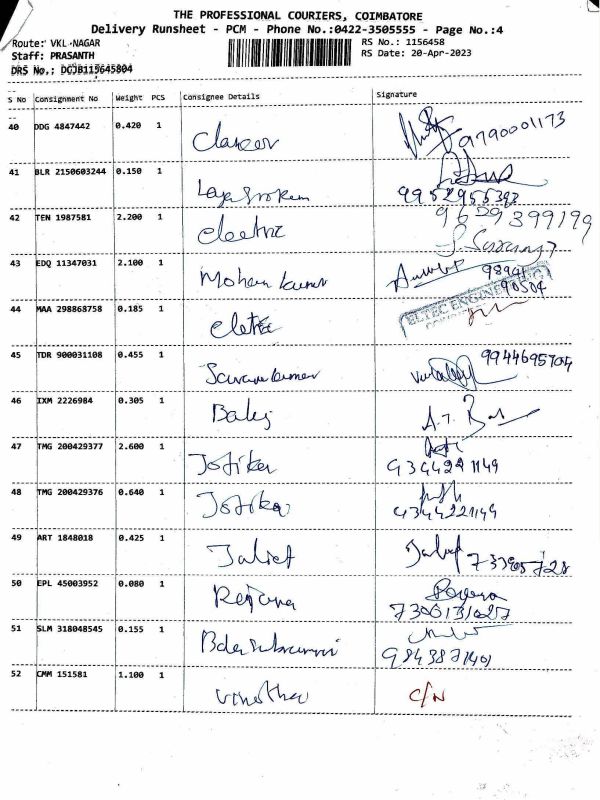 THE PROFESSIONAL COURIERS, COIMBATORE
Delivery Runsheet - PCM - Phone No.:0422-3505555 - Page No.:4
Route: VKL NAGAR
RS No.: 1156458
Staff: PRASANTH
RS Date: 20-Apr-2023
DRS No.: DCJB115645804
S No Consignment No Weight PCS Consignee Details Signature
40 DDG 4847442 0.420 1
9790001173
41 BLR 2150603244 0.150 1
42 TEN 1987581 2.200 1 electric
9629399199
43 EDQ 11347031 2.100 1 Mohan kumar
98941
90504
44 MAA 298868758 0.185 1
ELTEC ENGINEERING
45 TDR 900031108 0.455 1 Saravanakumar
46 IXM 2226984 0.305 1 Balaj
47 TMG 200429377 2.600 1 Jotika
9344221149
48 TMG 200429376 0.640 1 Jotika
9344221149
49 ART 1848018 0.425 1 Juliet
50 EPL 45003952 0.080 1
7300131027
51 SLM 318048545 0.155 1
9843871401
52 CMM 151581 1.100 1 vinotha C/N